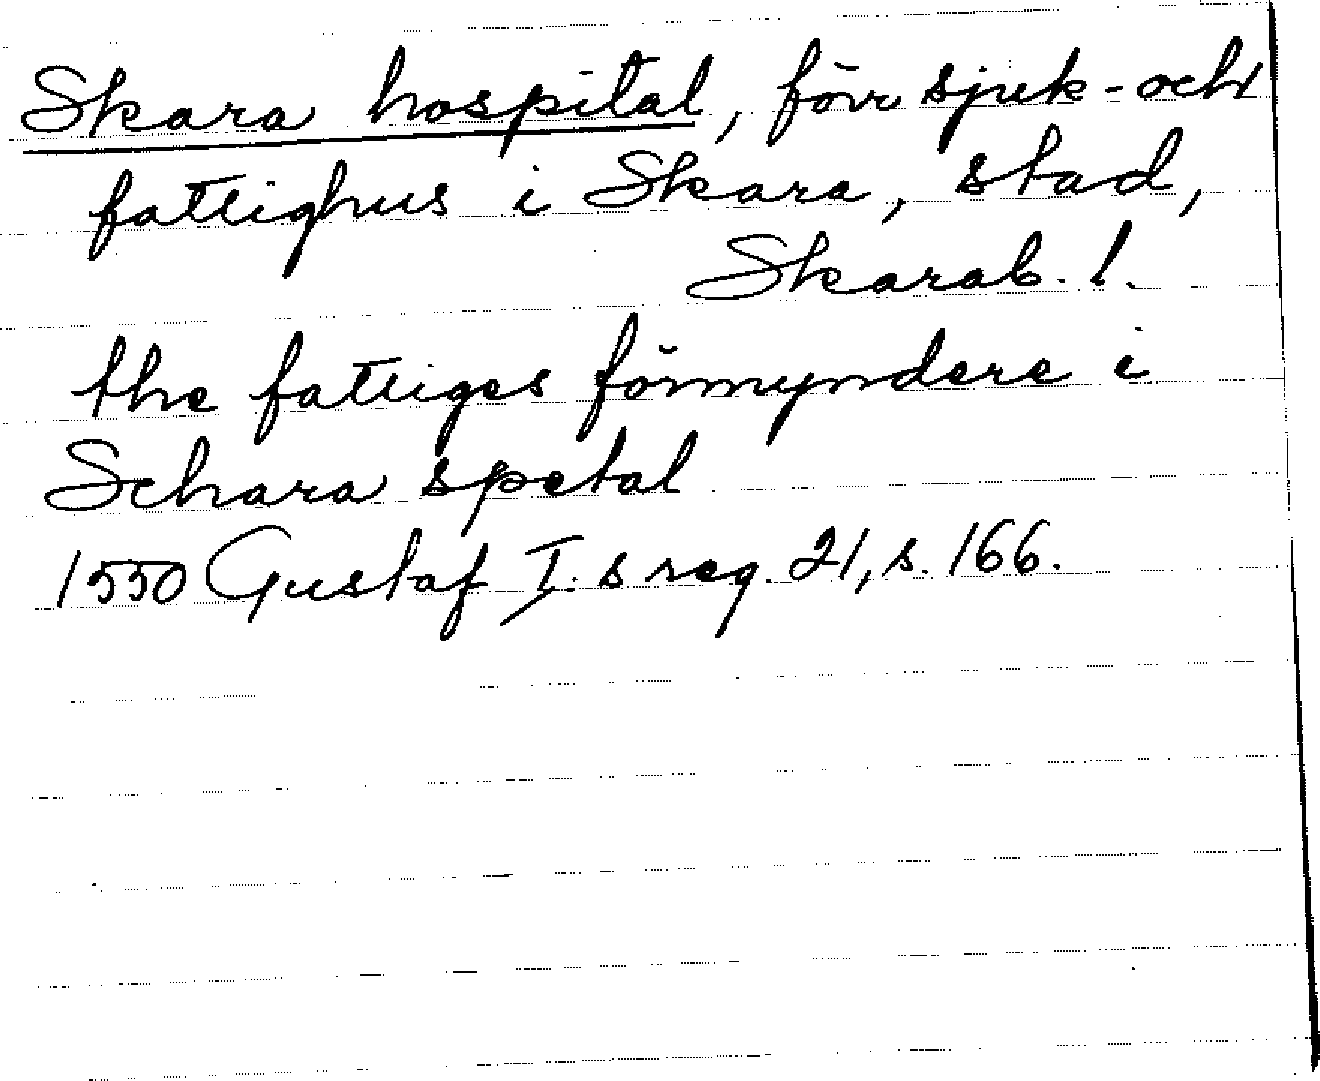 Skara hospital, förr sjuk- och
fattighus i Skara, stad,
Skarab. l.
the fattiges förmyndere i
Schara spetal
1550 Gustaf I:s reg. 21, s. 166.